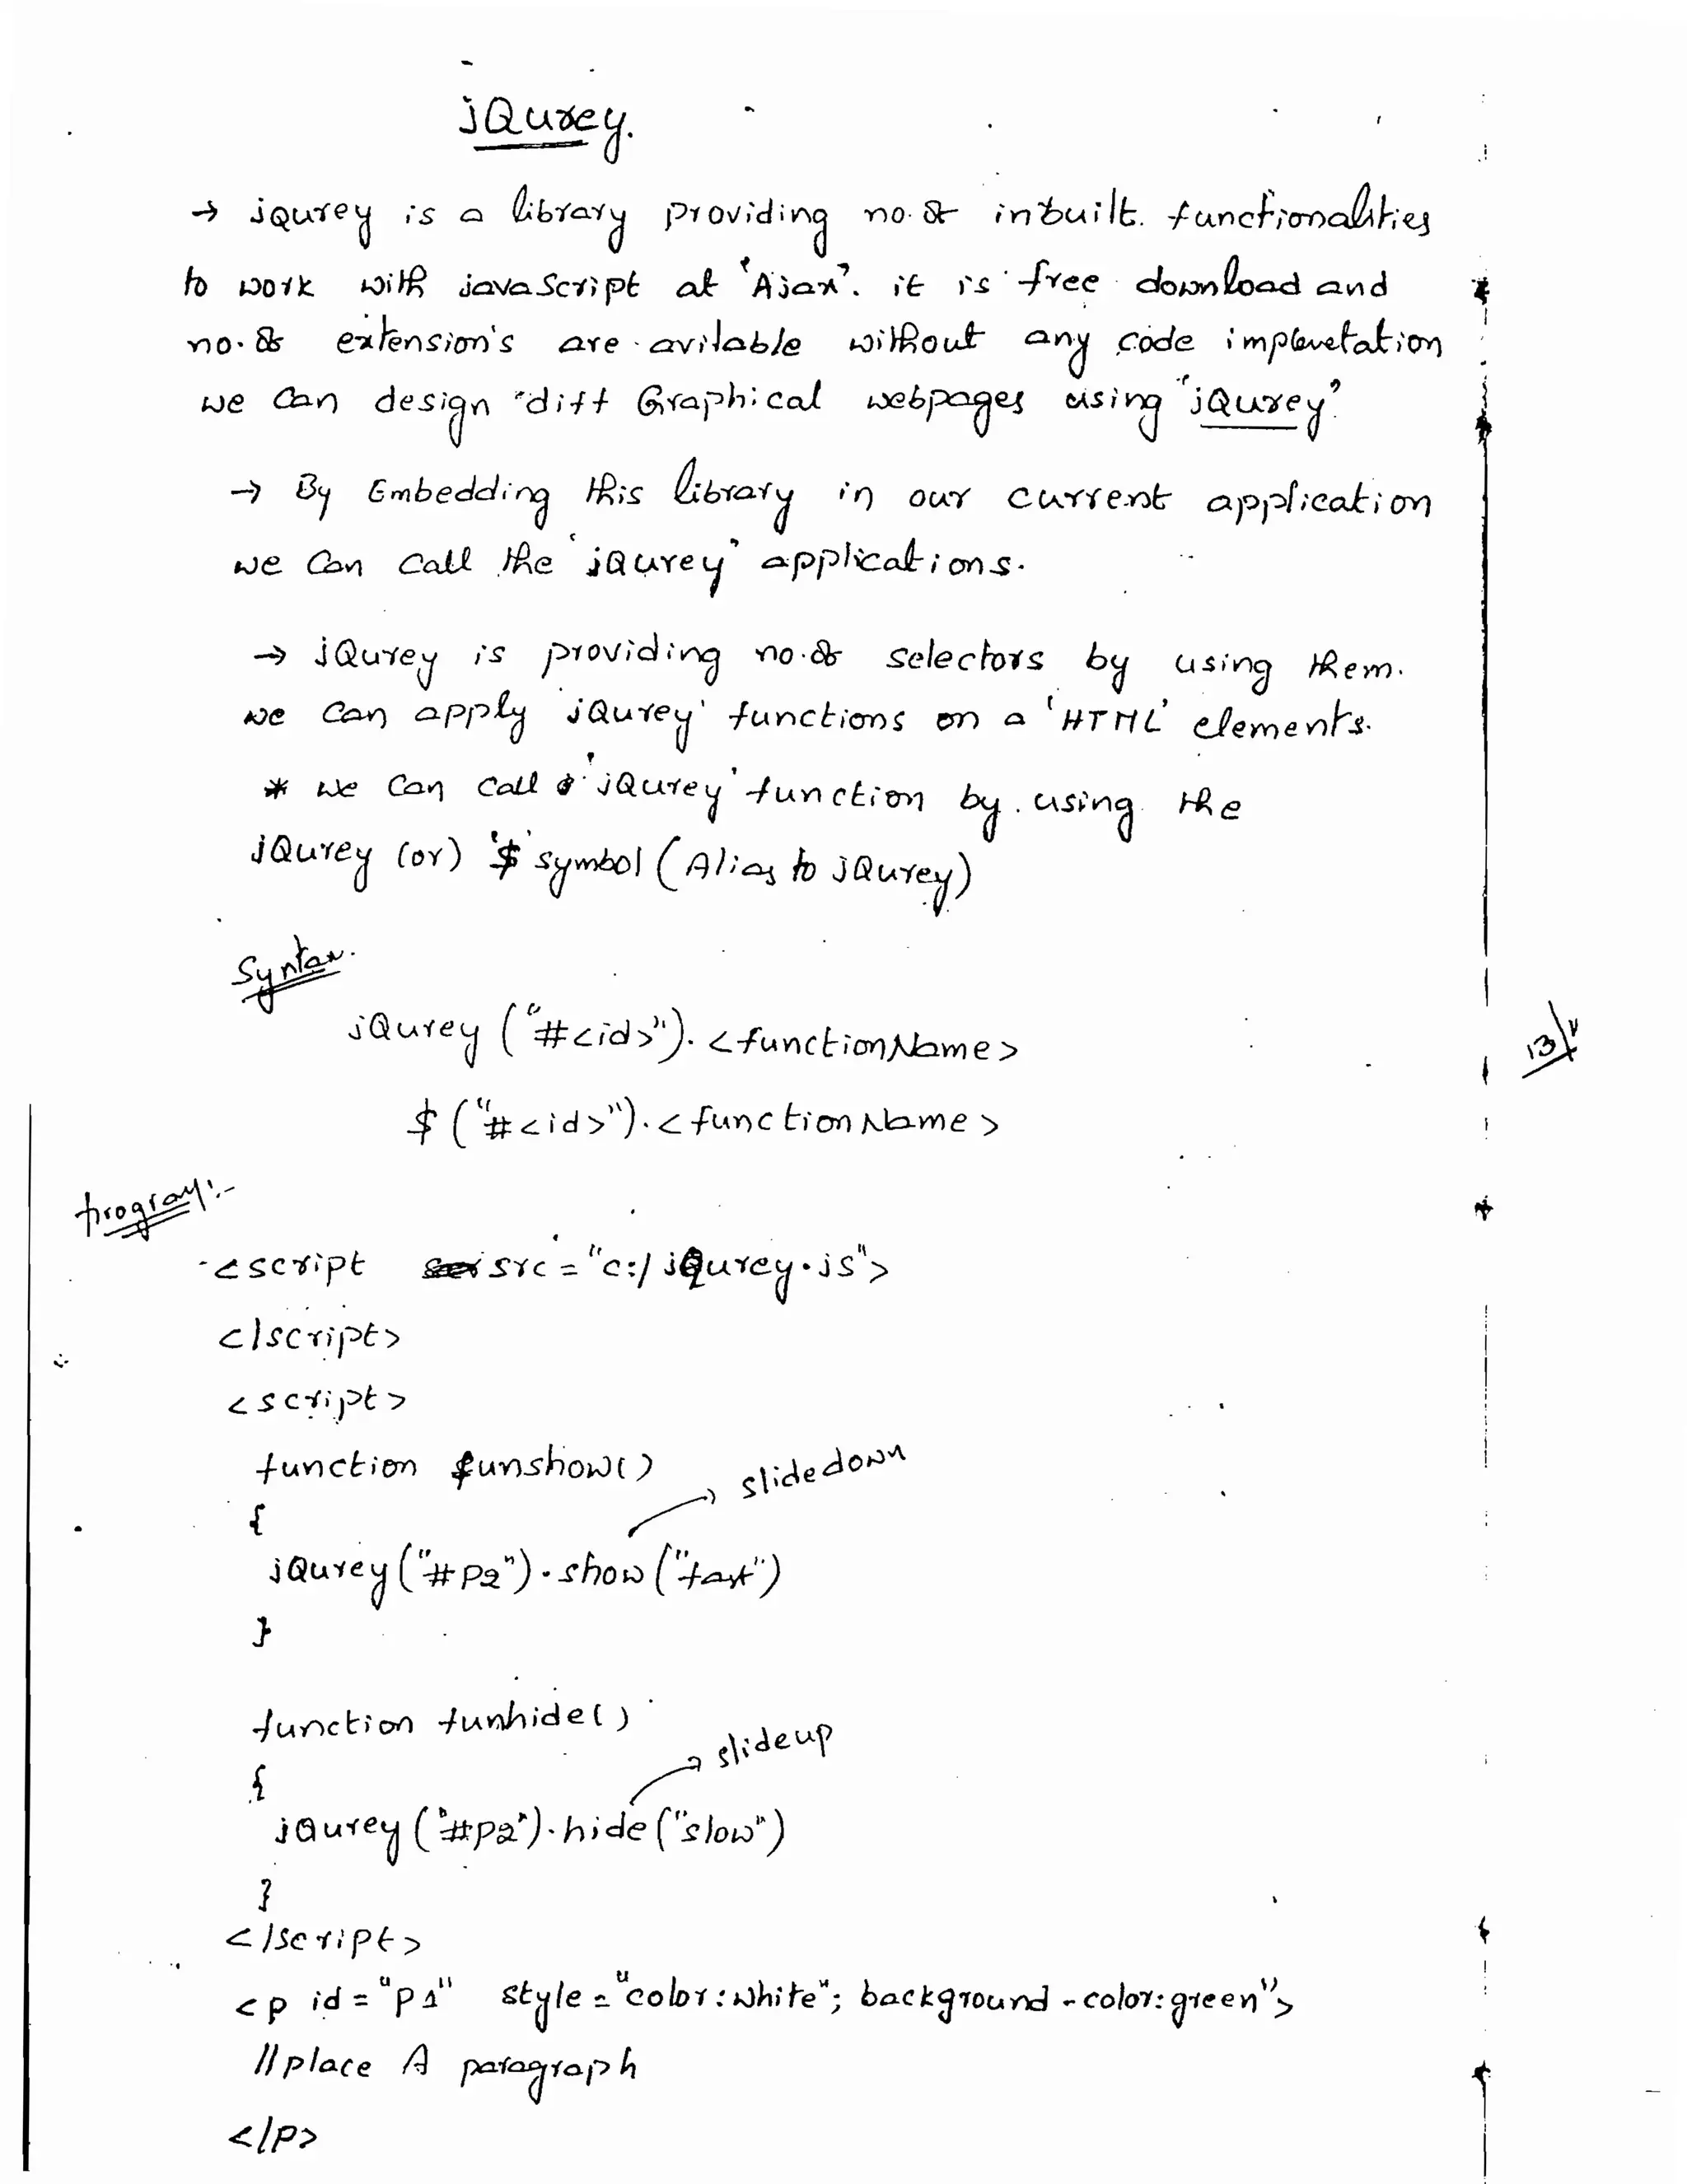 jQurey.
→ jQurey is a library providing no. of inbuilt. functionalities
to work with javaScript at 'Ajax'. it is free download and
no. of extension's are avilable without any code implevetation
we can design diff Graphical webpages using 'jQurey'.
→ By Embedding this library in our current application
we can call the 'jQurey' applications.
→ jQurey is providing no. of selectors by using them.
we can apply 'jQurey' functions on a 'HTML' elements.
* we can call 'jQurey' function by using the
jQurey (or) '$' symbol (Alias to jQurey)
Syntax.
jQurey ("#<id>"). <functionName>
$ ("#<id>"). <functionName>
program:-
<script src = "c:/jQurey.js">
</script>
<script>
function funshow()
slidedown
{
jQurey ("#p2").show ("fast")
}
function funhide()
slideup
{
jQurey ("#p2").hide ("slow")
}
</script>
<p id = "p1" style = "color:white"; background-color:green">
//place A paragraph
</p>